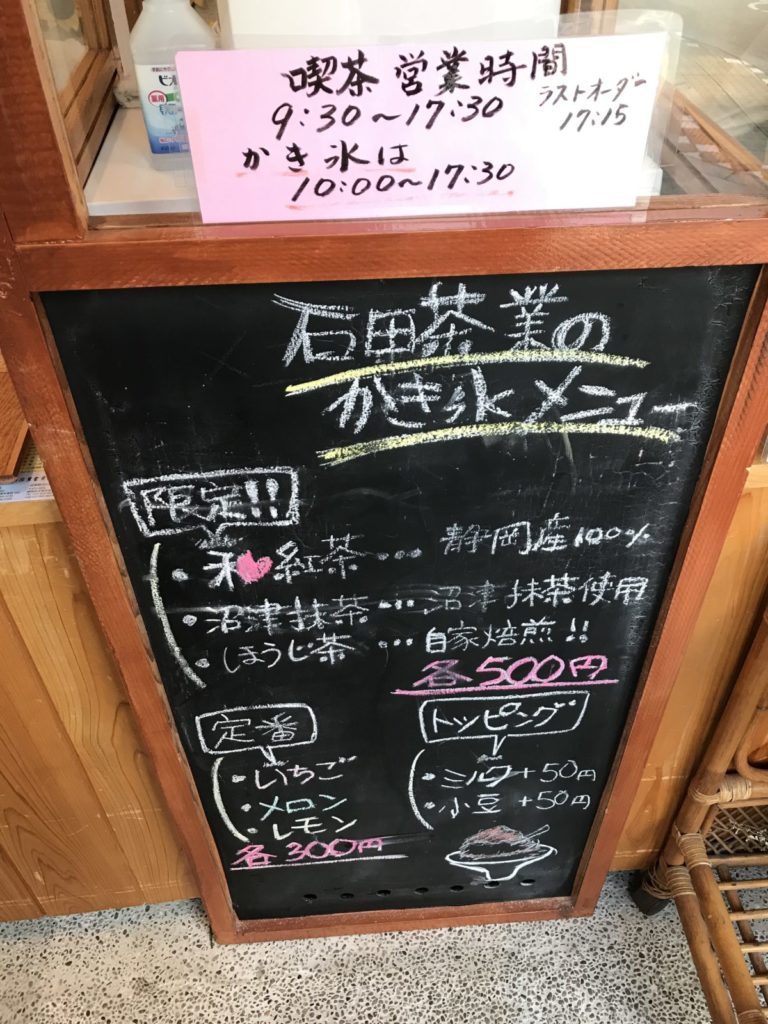 喫茶 営業時間
9:30～17:30
ラストオーダー
17:15
かき氷は
10:00～17:30
石田茶業の
かき氷メニュー
限定!!
・和紅茶…静岡産100%
・沼津抹茶…沼津抹茶使用
・ほうじ茶…自家焙煎!!
各500円
定番
・いちご
・メロン
・レモン
各300円
トッピング
・ミルク+50円
・小豆+50円